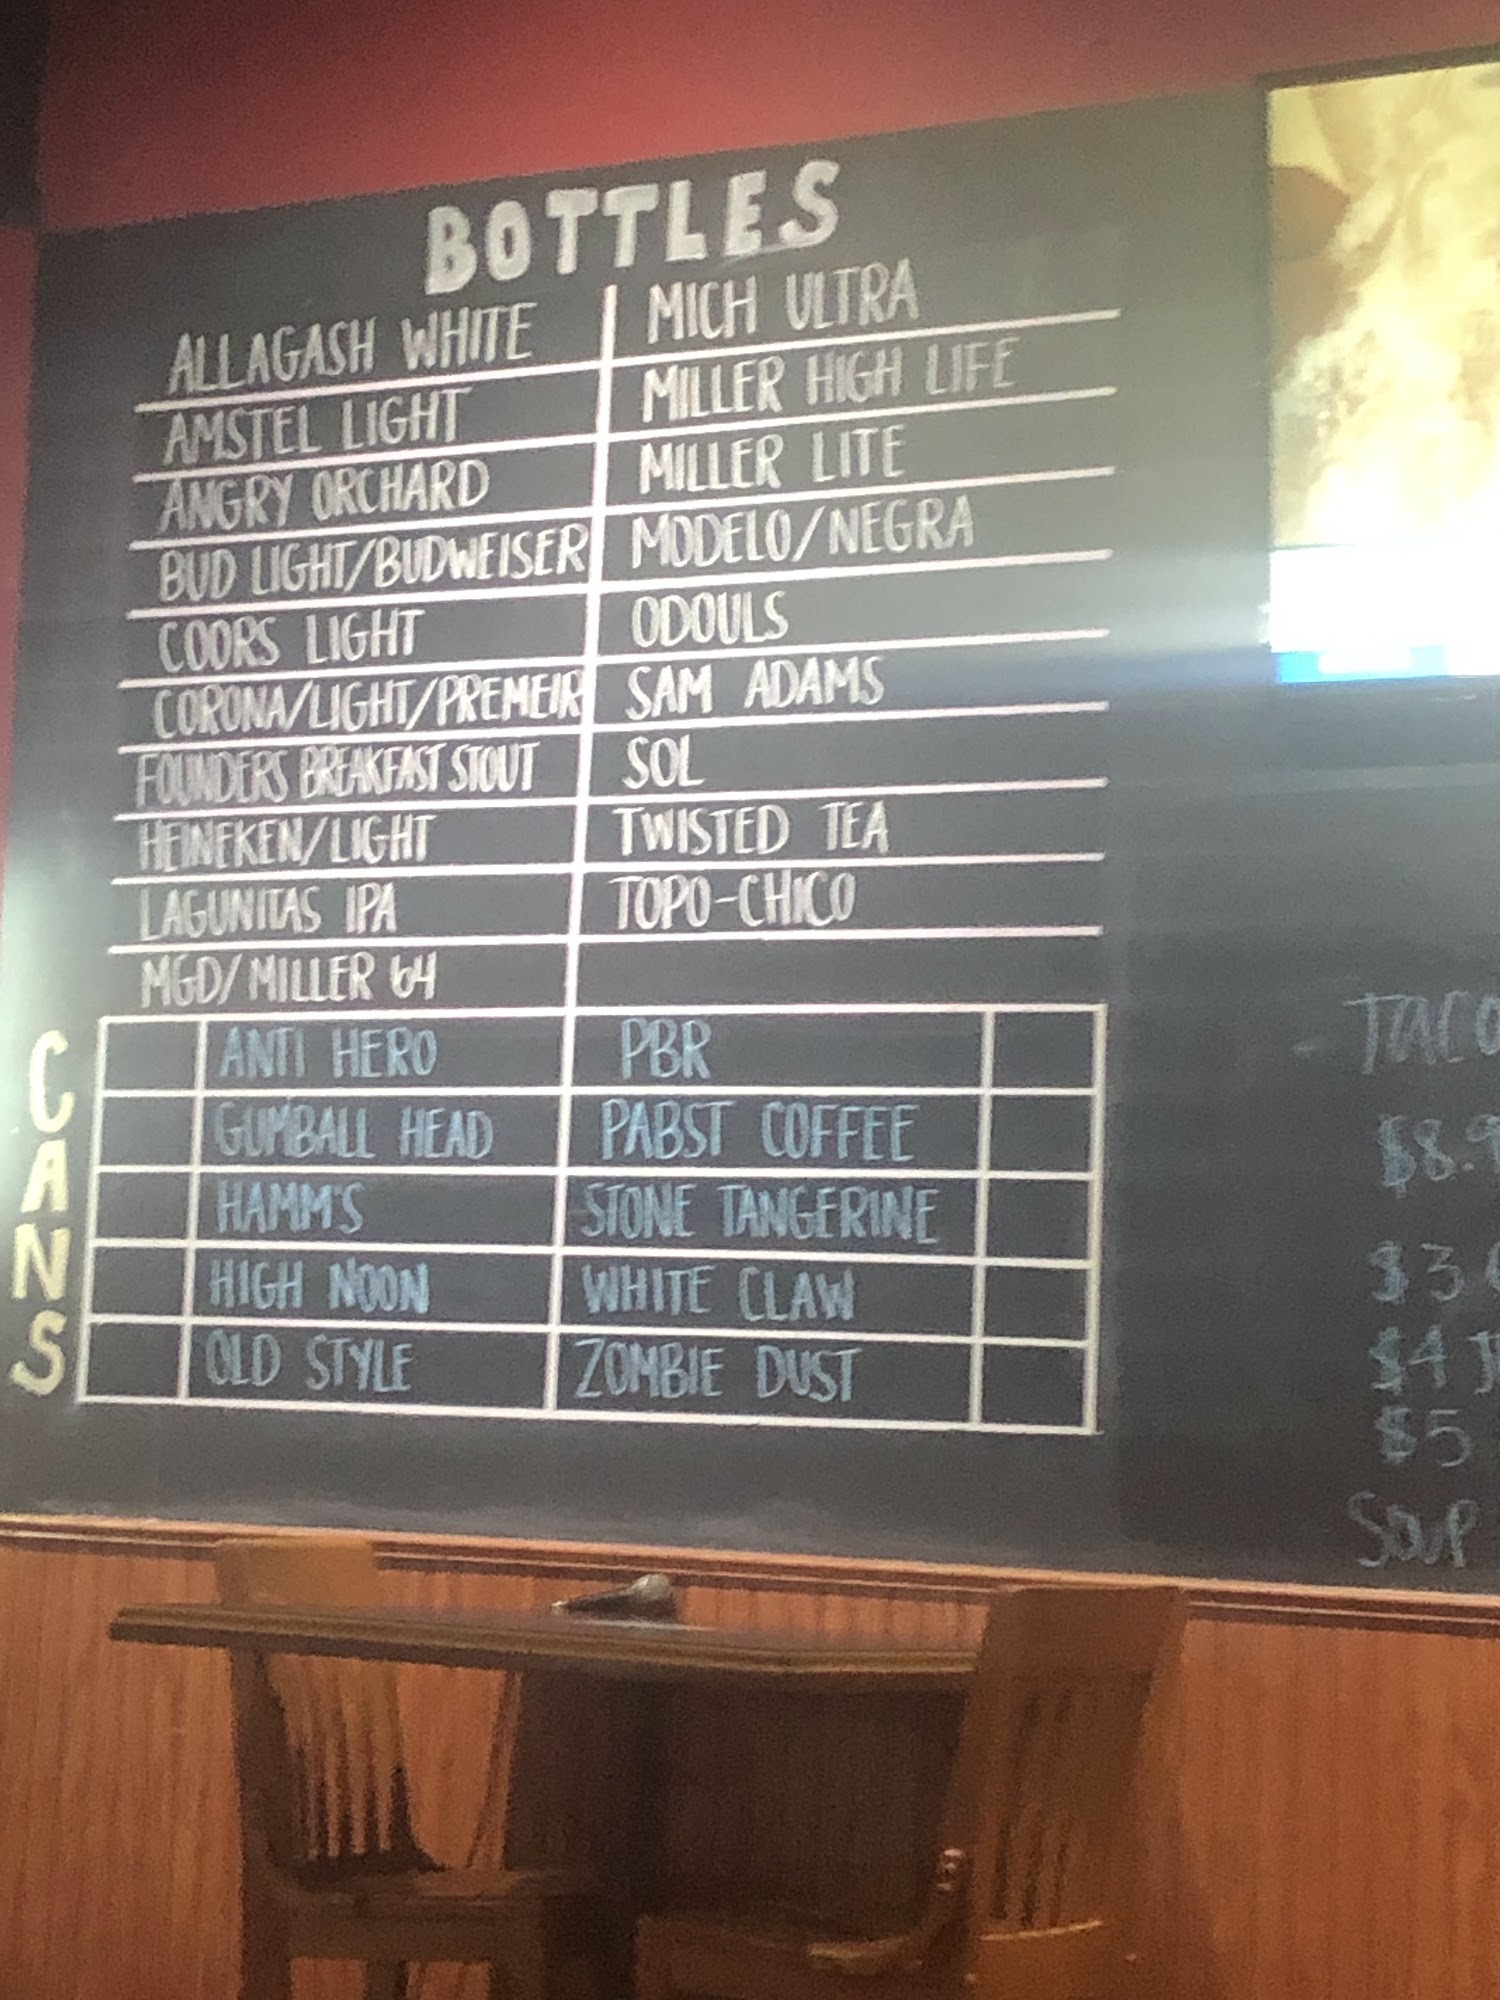 BOTTLES
ALLAGASH WHITE
AMSTEL LIGHT
ANGRY ORCHARD
BUD LIGHT/BUDWEISER
COORS LIGHT
CORONA/LIGHT/PREMEIR
FOUNDERS BREAKFAST STOUT
HEINEKEN/LIGHT
LAGUNITAS IPA
MGD/MILLER 64
MICH ULTRA
MILLER HIGH LIFE
MILLER LITE
MODELO/NEGRA
ODOULS
SAM ADAMS
SOL
TWISTED TEA
TOPO-CHICO
CANS
ANTI HERO
GUMBALL HEAD
HAMM'S
HIGH NOON
OLD STYLE
PBR
PABST COFFEE
STONE TANGERINE
WHITE CLAW
ZOMBIE DUST
- TACO
$8.9
$3
$4
$5
SOUP